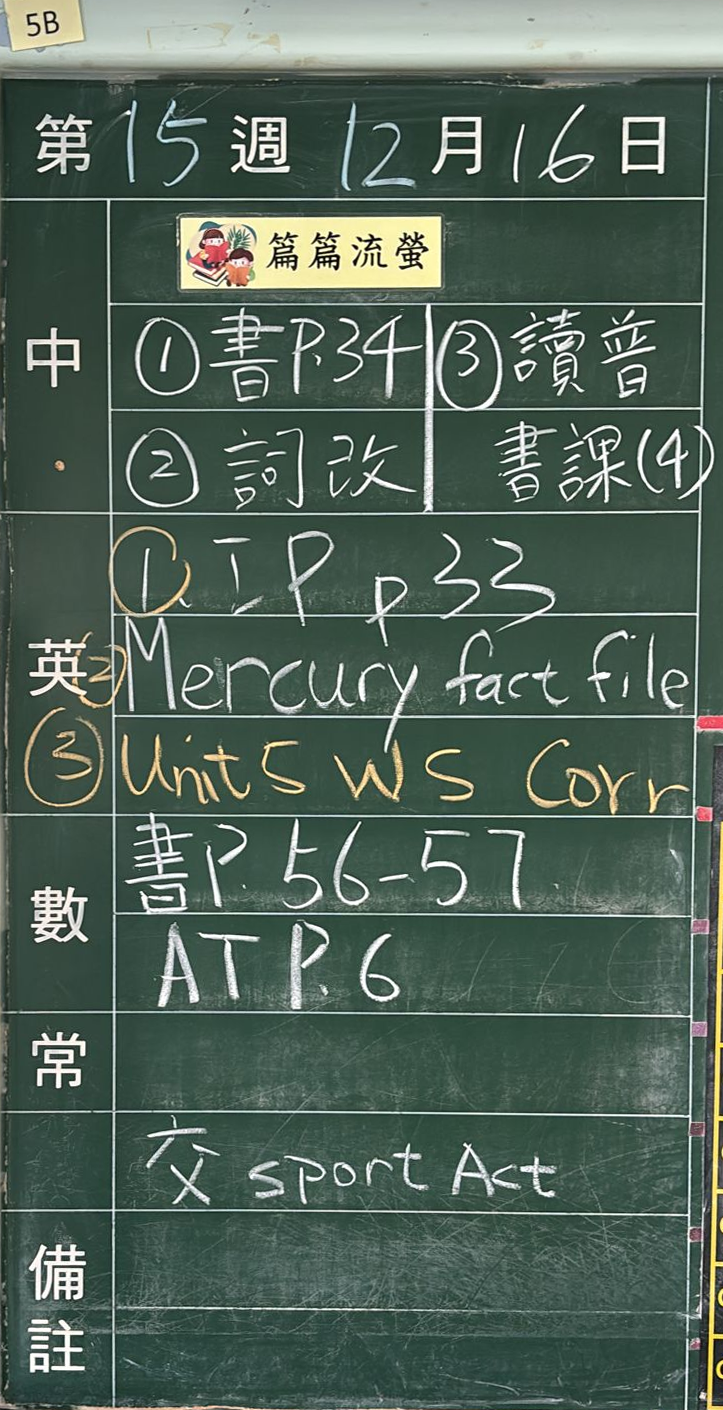 5B
第15週 12月16日
篇篇流螢
中
①書P.34
②詞改
③讀普
書課(4)
英
①. IP p33
②Mercury fact file
③Unit 5 WS Corr
數
書P. 56-57
AT P.6
常
交 sport Act
備註